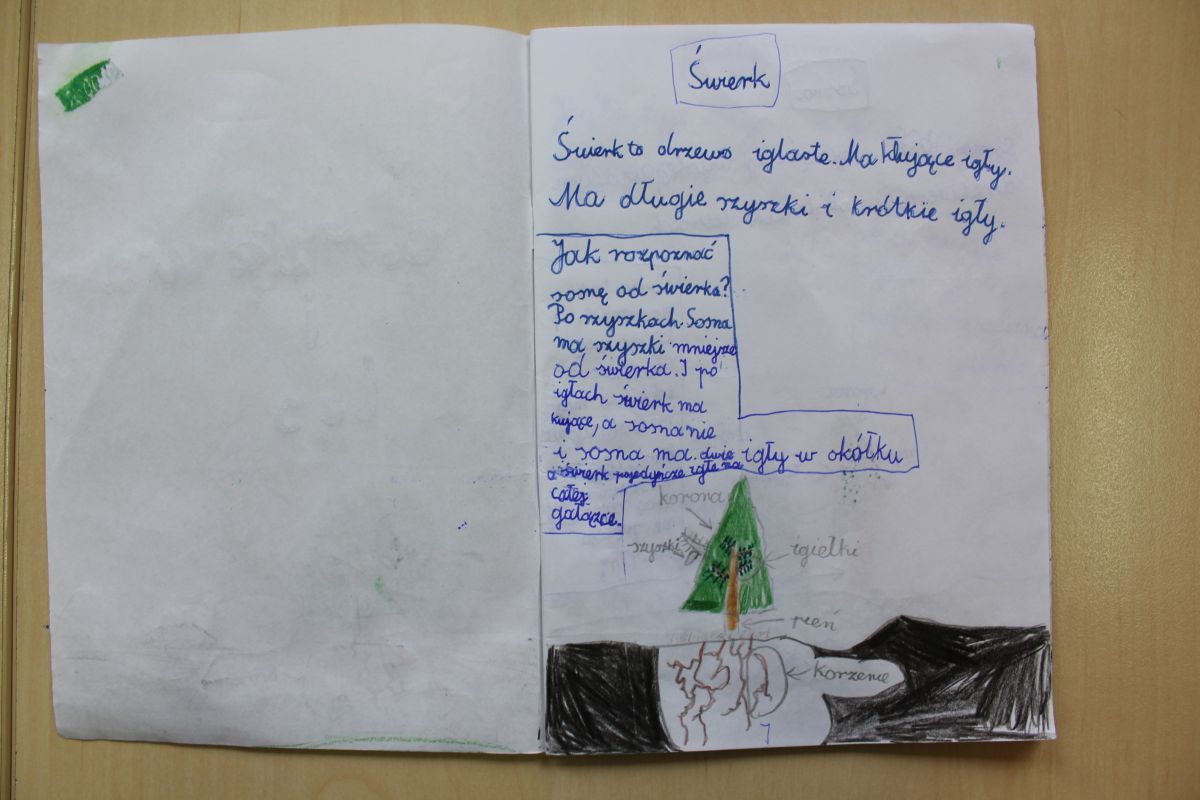 Świerk
Świerk to drzewo iglaste. Ma kłujące igły.
Ma długie szyszki i krótkie igły.
Jak rozpoznać
sosnę od świerka?
Po szyszkach. Sosna
ma szyszki mniejsze
od świerka. I po
igłach świerk ma
kujące, a sosna nie
i sosna ma dwie igły w okółku
a świerk pojedyńcze igłę na
całej
gałązce.
korona
szyszki
igiełki
pień
korzenie
7